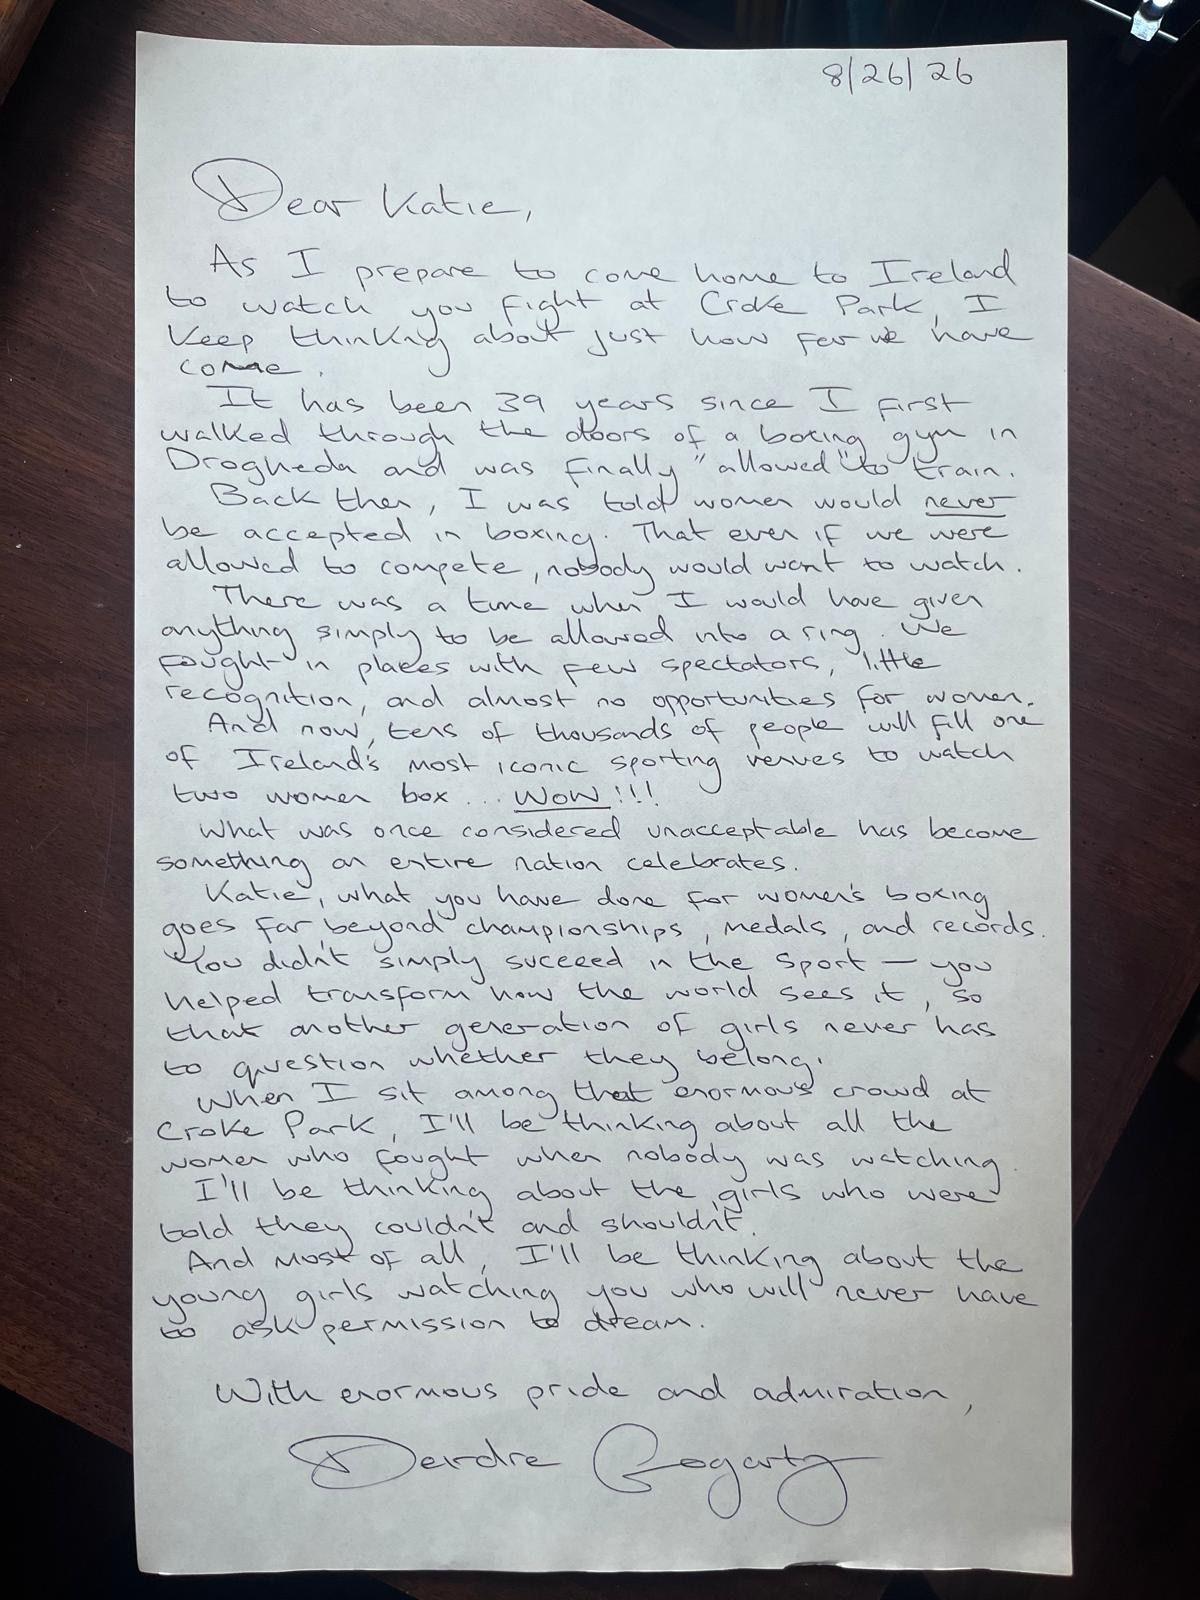 8/26/26
Dear Katie,
As I prepare to come home to Ireland
to watch you fight at Croke Park, I
keep thinking about just how far we have
come.
It has been 39 years since I first
walked through the doors of a boxing gym in
Drogheda and was finally "allowed" to train.
Back then, I was told women would never
be accepted in boxing. That even if we were
allowed to compete, nobody would want to watch.
There was a time when I would have given
anything simply to be allowed into a ring. We
fought in places with few spectators, little
recognition, and almost no opportunities for women.
And now, tens of thousands of people will fill one
of Ireland's most iconic sporting venues to watch
two women box... WOW!!!
What was once considered unacceptable has become
something an entire nation celebrates.
Katie, what you have done for women's boxing
goes far beyond championships, medals, and records.
You didn't simply succeed in the sport — you
helped transform how the world sees it, so
that another generation of girls never has
to question whether they belong.
When I sit among that enormous crowd at
Croke Park, I'll be thinking about all the
women who fought when nobody was watching.
I'll be thinking about the girls who were
told they couldn't and shouldn't.
And most of all, I'll be thinking about the
young girls watching you who will never have
to ask permission to dream.
With enormous pride and admiration,
Deirdre Gogarty